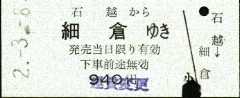 石越から
細倉ゆき
発売当日限り有効
下車前途無効
940円
石越→細倉
小